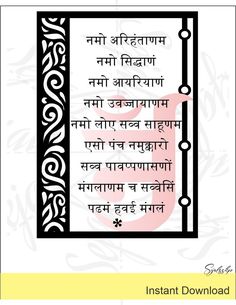 नमो अरिहंताणम
नमो सिद्धाणं
नमो आयरियाणं
नमो उवज्जायाणम
नमो लोए सव्व साहूणम
एसो पंच नमुक्कारो
सव्व पावप्पणासणों
मंगलाणम च सव्वेसिं
पढमं हवई मंगलं
Instant Download